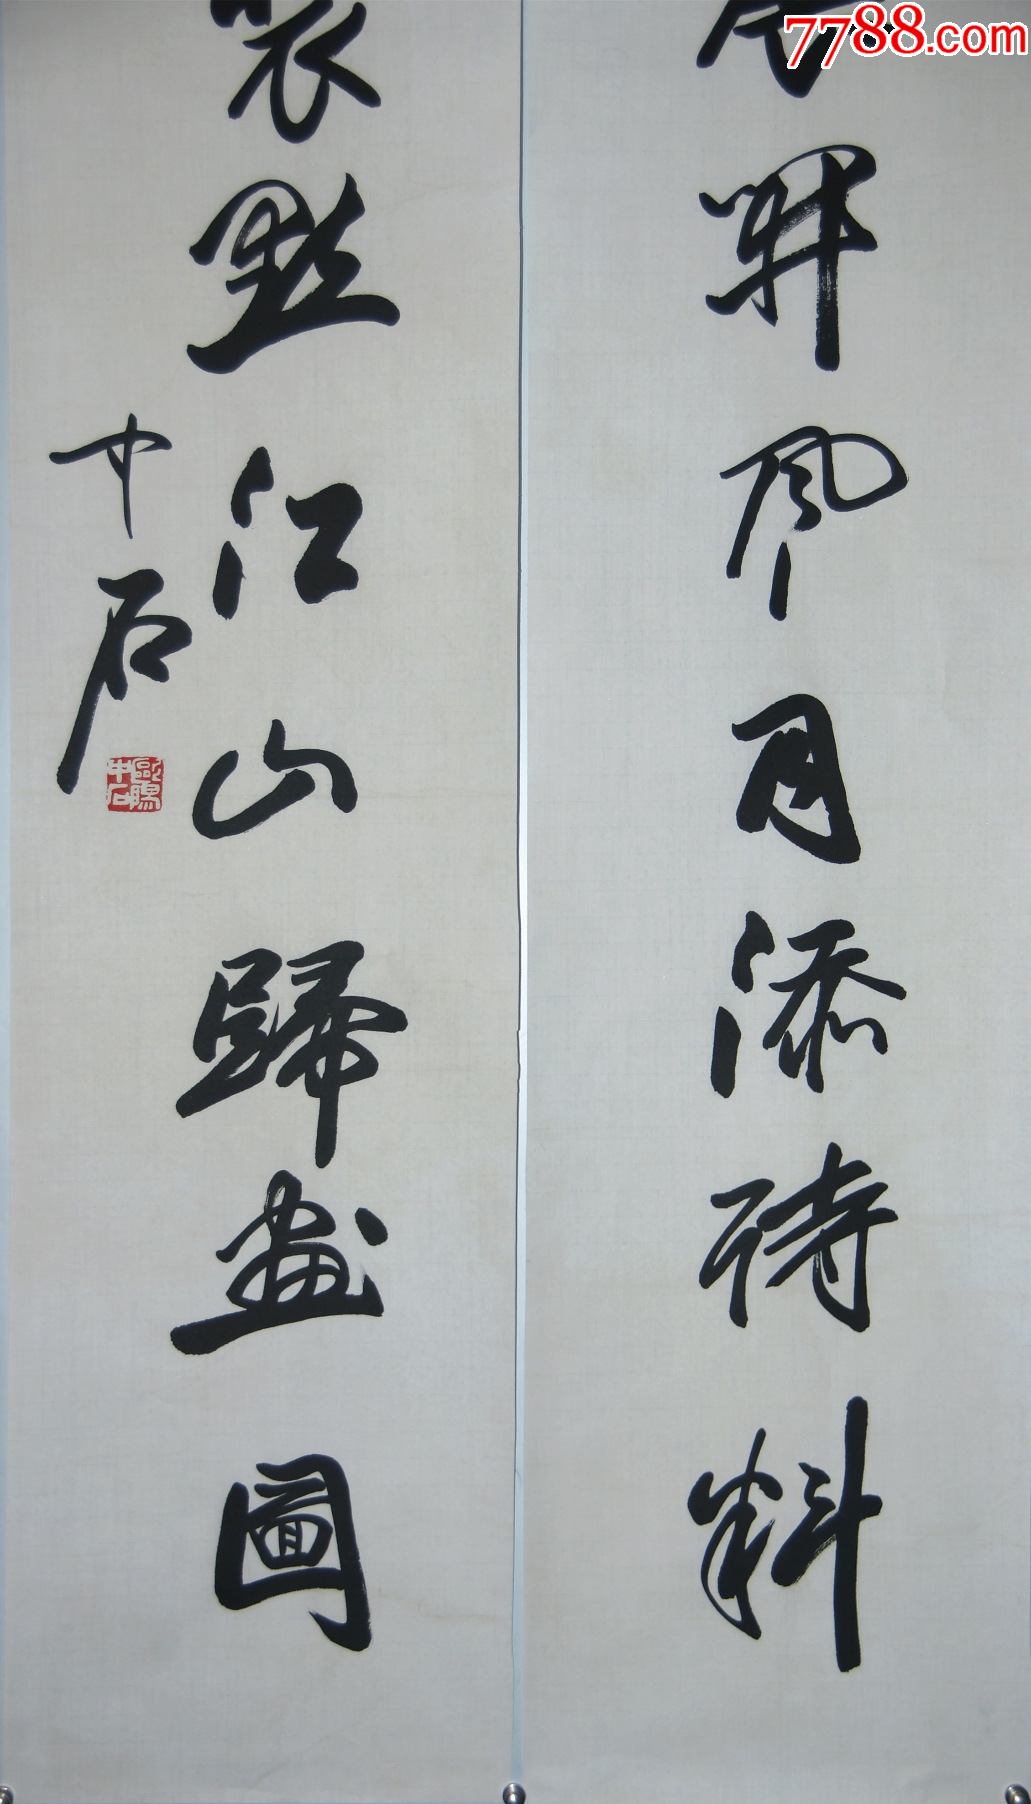 7788.com
風月添詩料
裝點江山歸畫圖
中石
歐陽中石